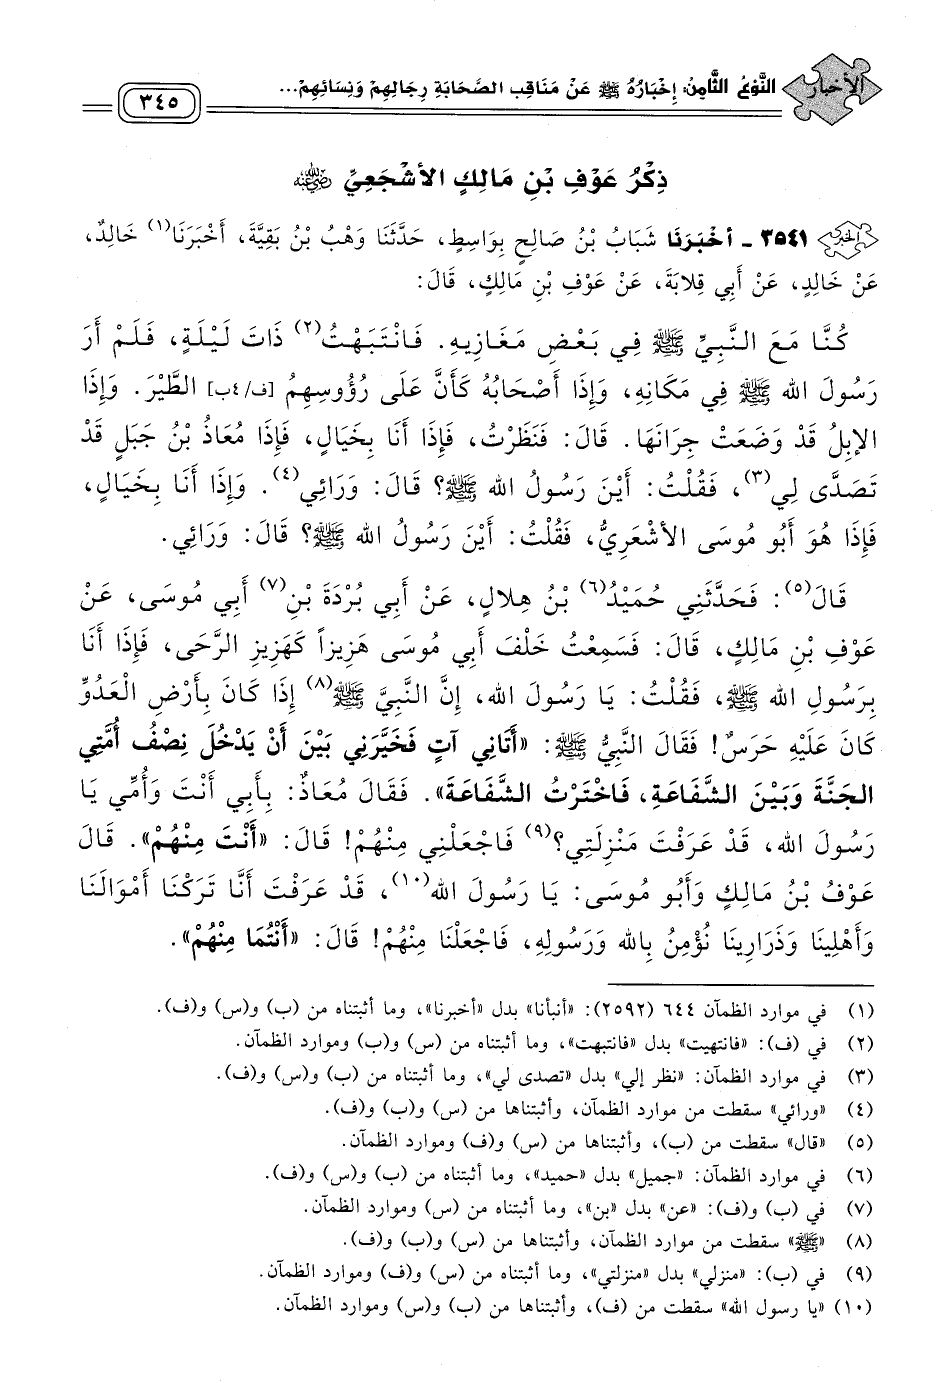 الأخبار
النَّوْعُ الثَّامِنُ: إِخْبَارُهُ ﷺ عَنْ مَنَاقِبِ الصَّحَابَةِ رِجَالِهِمْ وَنِسَائِهِمْ...
٣٤٥
ذِكْرُ عَوْفِ بْنِ مَالِكٍ الأَشْجَعِيِّ رضي الله عنه
٣٥٤١ - أَخْبَرَنَا شَبَابُ بْنُ صَالِحٍ بِوَاسِطٍ، حَدَّثَنَا وَهْبُ بْنُ بَقِيَّةَ، أَخْبَرَنَا(١) خَالِدٌ،
عَنْ خَالِدٍ، عَنْ أَبِي قِلابَةَ، عَنْ عَوْفِ بْنِ مَالِكٍ، قَالَ:
كُنَّا مَعَ النَّبِيِّ ﷺ فِي بَعْضِ مَغَازِيهِ. فَانْتَبَهْتُ(٢) ذَاتَ لَيْلَةٍ، فَلَمْ أَرَ
رَسُولَ الله ﷺ فِي مَكَانِهِ، وَإِذَا أَصْحَابُهُ كَأَنَّ عَلَى رُؤُوسِهِمُ [ف/٤ب] الطَّيْرَ. وَإِذَا
الإِبِلُ قَدْ وَضَعَتْ جِرَانَهَا. قَالَ: فَنَظَرْتُ، فَإِذَا أَنَا بِخَيَالٍ، فَإِذَا مُعَاذُ بْنُ جَبَلٍ قَدْ
تَصَدَّى لِي(٣)، فَقُلْتُ: أَيْنَ رَسُولُ الله ﷺ؟ قَالَ: وَرَائِي(٤). وَإِذَا أَنَا بِخَيَالٍ،
فَإِذَا هُوَ أَبُو مُوسَى الأَشْعَرِيُّ، فَقُلْتُ: أَيْنَ رَسُولُ الله ﷺ؟ قَالَ: وَرَائِي.
قَالَ(٥): فَحَدَّثَنِي حُمَيْدُ(٦) بْنُ هِلالٍ، عَنْ أَبِي بُرْدَةَ بْنِ(٧) أَبِي مُوسَى، عَنْ
عَوْفِ بْنِ مَالِكٍ، قَالَ: فَسَمِعْتُ خَلْفَ أَبِي مُوسَى هَزِيزاً كَهَزِيزِ الرَّحَى، فَإِذَا أَنَا
بِرَسُولِ الله ﷺ، فَقُلْتُ: يَا رَسُولَ الله، إِنَّ النَّبِيَّ ﷺ(٨) إِذَا كَانَ بِأَرْضِ الْعَدُوِّ
كَانَ عَلَيْهِ حَرَسٌ! فَقَالَ النَّبِيُّ ﷺ: «أَتَانِي آتٍ فَخَيَّرَنِي بَيْنَ أَنْ يَدْخُلَ نِصْفُ أُمَّتِي
الْجَنَّةَ وَبَيْنَ الشَّفَاعَةِ، فَاخْتَرْتُ الشَّفَاعَةَ». فَقَالَ مُعَاذٌ: بِأَبِي أَنْتَ وَأُمِّي يَا
رَسُولَ الله، قَدْ عَرَفْتَ مَنْزِلَتِي؟(٩) فَاجْعَلْنِي مِنْهُمْ! قَالَ: «أَنْتَ مِنْهُمْ». قَالَ
عَوْفُ بْنُ مَالِكٍ وَأَبُو مُوسَى: يَا رَسُولَ الله(١٠)، قَدْ عَرَفْتَ أَنَّا تَرَكْنَا أَمْوَالَنَا
وَأَهْلِينَا وَذَرَارِينَا نُؤْمِنُ بِالله وَرَسُولِهِ، فَاجْعَلْنَا مِنْهُمْ! قَالَ: «أَنْتُمَا مِنْهُمْ».
(١) في موارد الظمآن ٦٤٤ (٢٥٩٢): «أنبأنا» بدل «أخبرنا»، وما أثبتناه من (ب) و(س) و(ف).
(٢) في (ف): «فانتهيت» بدل «فانتبهت»، وما أثبتناه من (س) و(ب) وموارد الظمآن.
(٣) في موارد الظمآن: «نظر إلي» بدل «تصدى لي»، وما أثبتناه من (ب) و(س) و(ف).
(٤) «ورائي» سقطت من موارد الظمآن، وأثبتناها من (س) و(ب) و(ف).
(٥) «قال» سقطت من (ب)، وأثبتناها من (س) و(ف) وموارد الظمآن.
(٦) في موارد الظمآن: «جميل» بدل «حميد»، وما أثبتناه من (ب) و(س) و(ف).
(٧) في (ب) و(ف): «عن» بدل «بن»، وما أثبتناه من (س) وموارد الظمآن.
(٨) «ﷺ» سقطت من موارد الظمآن، وأثبتناها من (س) و(ب) و(ف).
(٩) في (ب): «منزلي» بدل «منزلتي»، وما أثبتناه من (س) و(ف) وموارد الظمآن.
(١٠) «يا رسول الله» سقطت من (ف)، وأثبتناها من (ب) و(س) وموارد الظمآن.